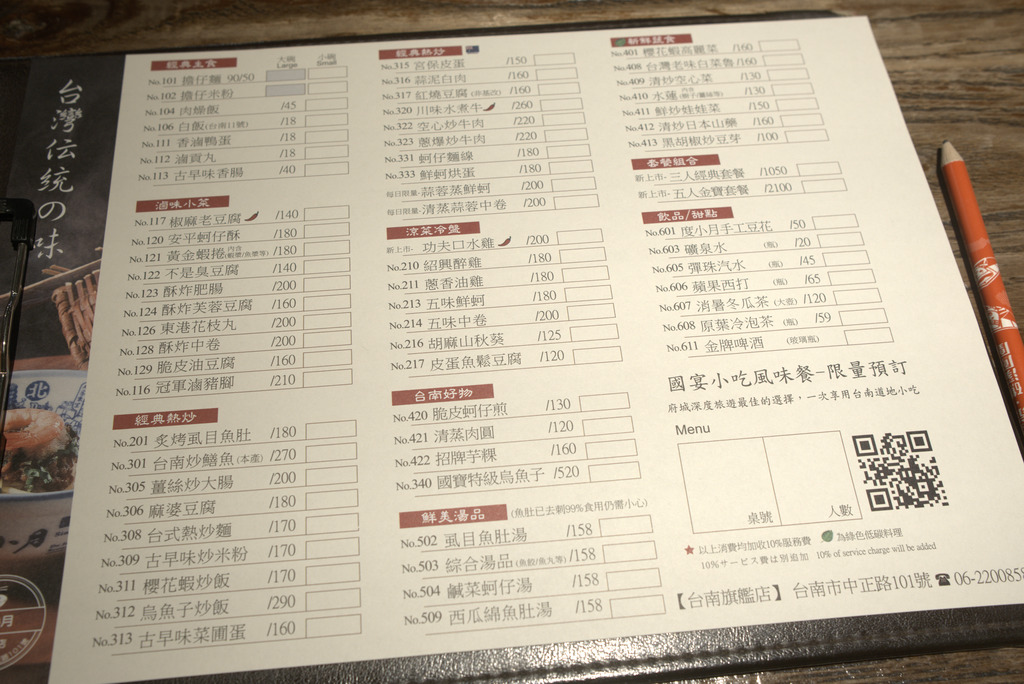 台灣伝統の味
經典主食
大碗 Large
小碗 Small
No.101 擔仔麵 90/50
No.102 擔仔米粉
No.104 肉燥飯 /45
No.106 白飯(台南11號) /18
No.111 香滷鴨蛋 /18
No.112 滷貢丸 /18
No.113 古早味香腸 /40
滷味小菜
No.117 椒麻老豆腐 /140
No.120 安平蚵仔酥 /180
No.121 黃金蝦捲 /180
No.122 不是臭豆腐 /140
No.123 酥炸肥腸 /200
No.124 酥炸芙蓉豆腐 /160
No.126 東港花枝丸 /200
No.128 酥炸中卷 /200
No.129 脆皮油豆腐 /160
No.116 冠軍滷豬腳 /210
經典熱炒
No.201 炙烤虱目魚肚 /180
No.301 台南炒鱔魚(本產) /270
No.305 薑絲炒大腸 /200
No.306 麻婆豆腐 /180
No.308 台式熱炒麵 /170
No.309 古早味炒米粉 /170
No.311 櫻花蝦炒飯 /170
No.312 烏魚子炒飯 /290
No.313 古早味菜圃蛋 /160
經典熱炒
No.315 宮保皮蛋 /150
No.316 蒜泥白肉 /160
No.317 紅燒豆腐(非基改) /160
No.320 川味水煮牛 /260
No.322 空心炒牛肉 /220
No.323 蔥爆炒牛肉 /220
No.331 蚵仔麵線 /180
No.333 鮮蚵烘蛋 /180
每日限量- 蒜蓉蒸鮮蚵 /200
每日限量- 清蒸蒜蓉中卷 /200
涼菜冷盤
新上市- 功夫口水雞 /200
No.210 紹興醉雞 /180
No.211 蔥香油雞 /180
No.213 五味鮮蚵 /180
No.214 五味中卷 /200
No.216 胡麻山秋葵 /125
No.217 皮蛋魚鬆豆腐 /120
台南好物
No.420 脆皮蚵仔煎 /130
No.421 清蒸肉圓 /120
No.422 招牌芋粿 /160
No.340 國寶特級烏魚子 /520
鮮美湯品 (魚肚已去刺99%食用仍需小心)
No.502 虱目魚肚湯 /158
No.503 綜合湯品(魚餃/魚丸等) /158
No.504 鹹菜蚵仔湯 /158
No.509 西瓜綿魚肚湯 /158
新鮮蔬食
No.401 櫻花蝦高麗菜 /160
No.408 台灣老味白菜魯 /160
No.409 清炒空心菜 /130
No.410 水蓮 /130
No.411 鮮炒娃娃菜 /150
No.412 清炒日本山藥 /160
No.413 黑胡椒炒豆芽 /100
套餐組合
新上市- 三人經典套餐 /1050
新上市- 五人金寶套餐 /2100
飲品/甜點
No.601 度小月手工豆花 /50
No.603 礦泉水 (瓶) /20
No.605 彈珠汽水 (瓶) /45
No.606 蘋果西打 (瓶) /65
No.607 消暑冬瓜茶 (大壺) /120
No.608 原葉冷泡茶 (瓶) /59
No.611 金牌啤酒 (玻璃瓶)
國宴小吃風味餐-限量預訂
府城深度旅遊最佳的選擇，一次享用台南道地小吃
Menu
桌號
人數
★ 以上消費均加收10%服務費 為綠色低碳料理
10%サービス費は別追加 10% of service charge will be added
【台南旗艦店】 台南市中正路101號 ☎ 06-220085
北
月